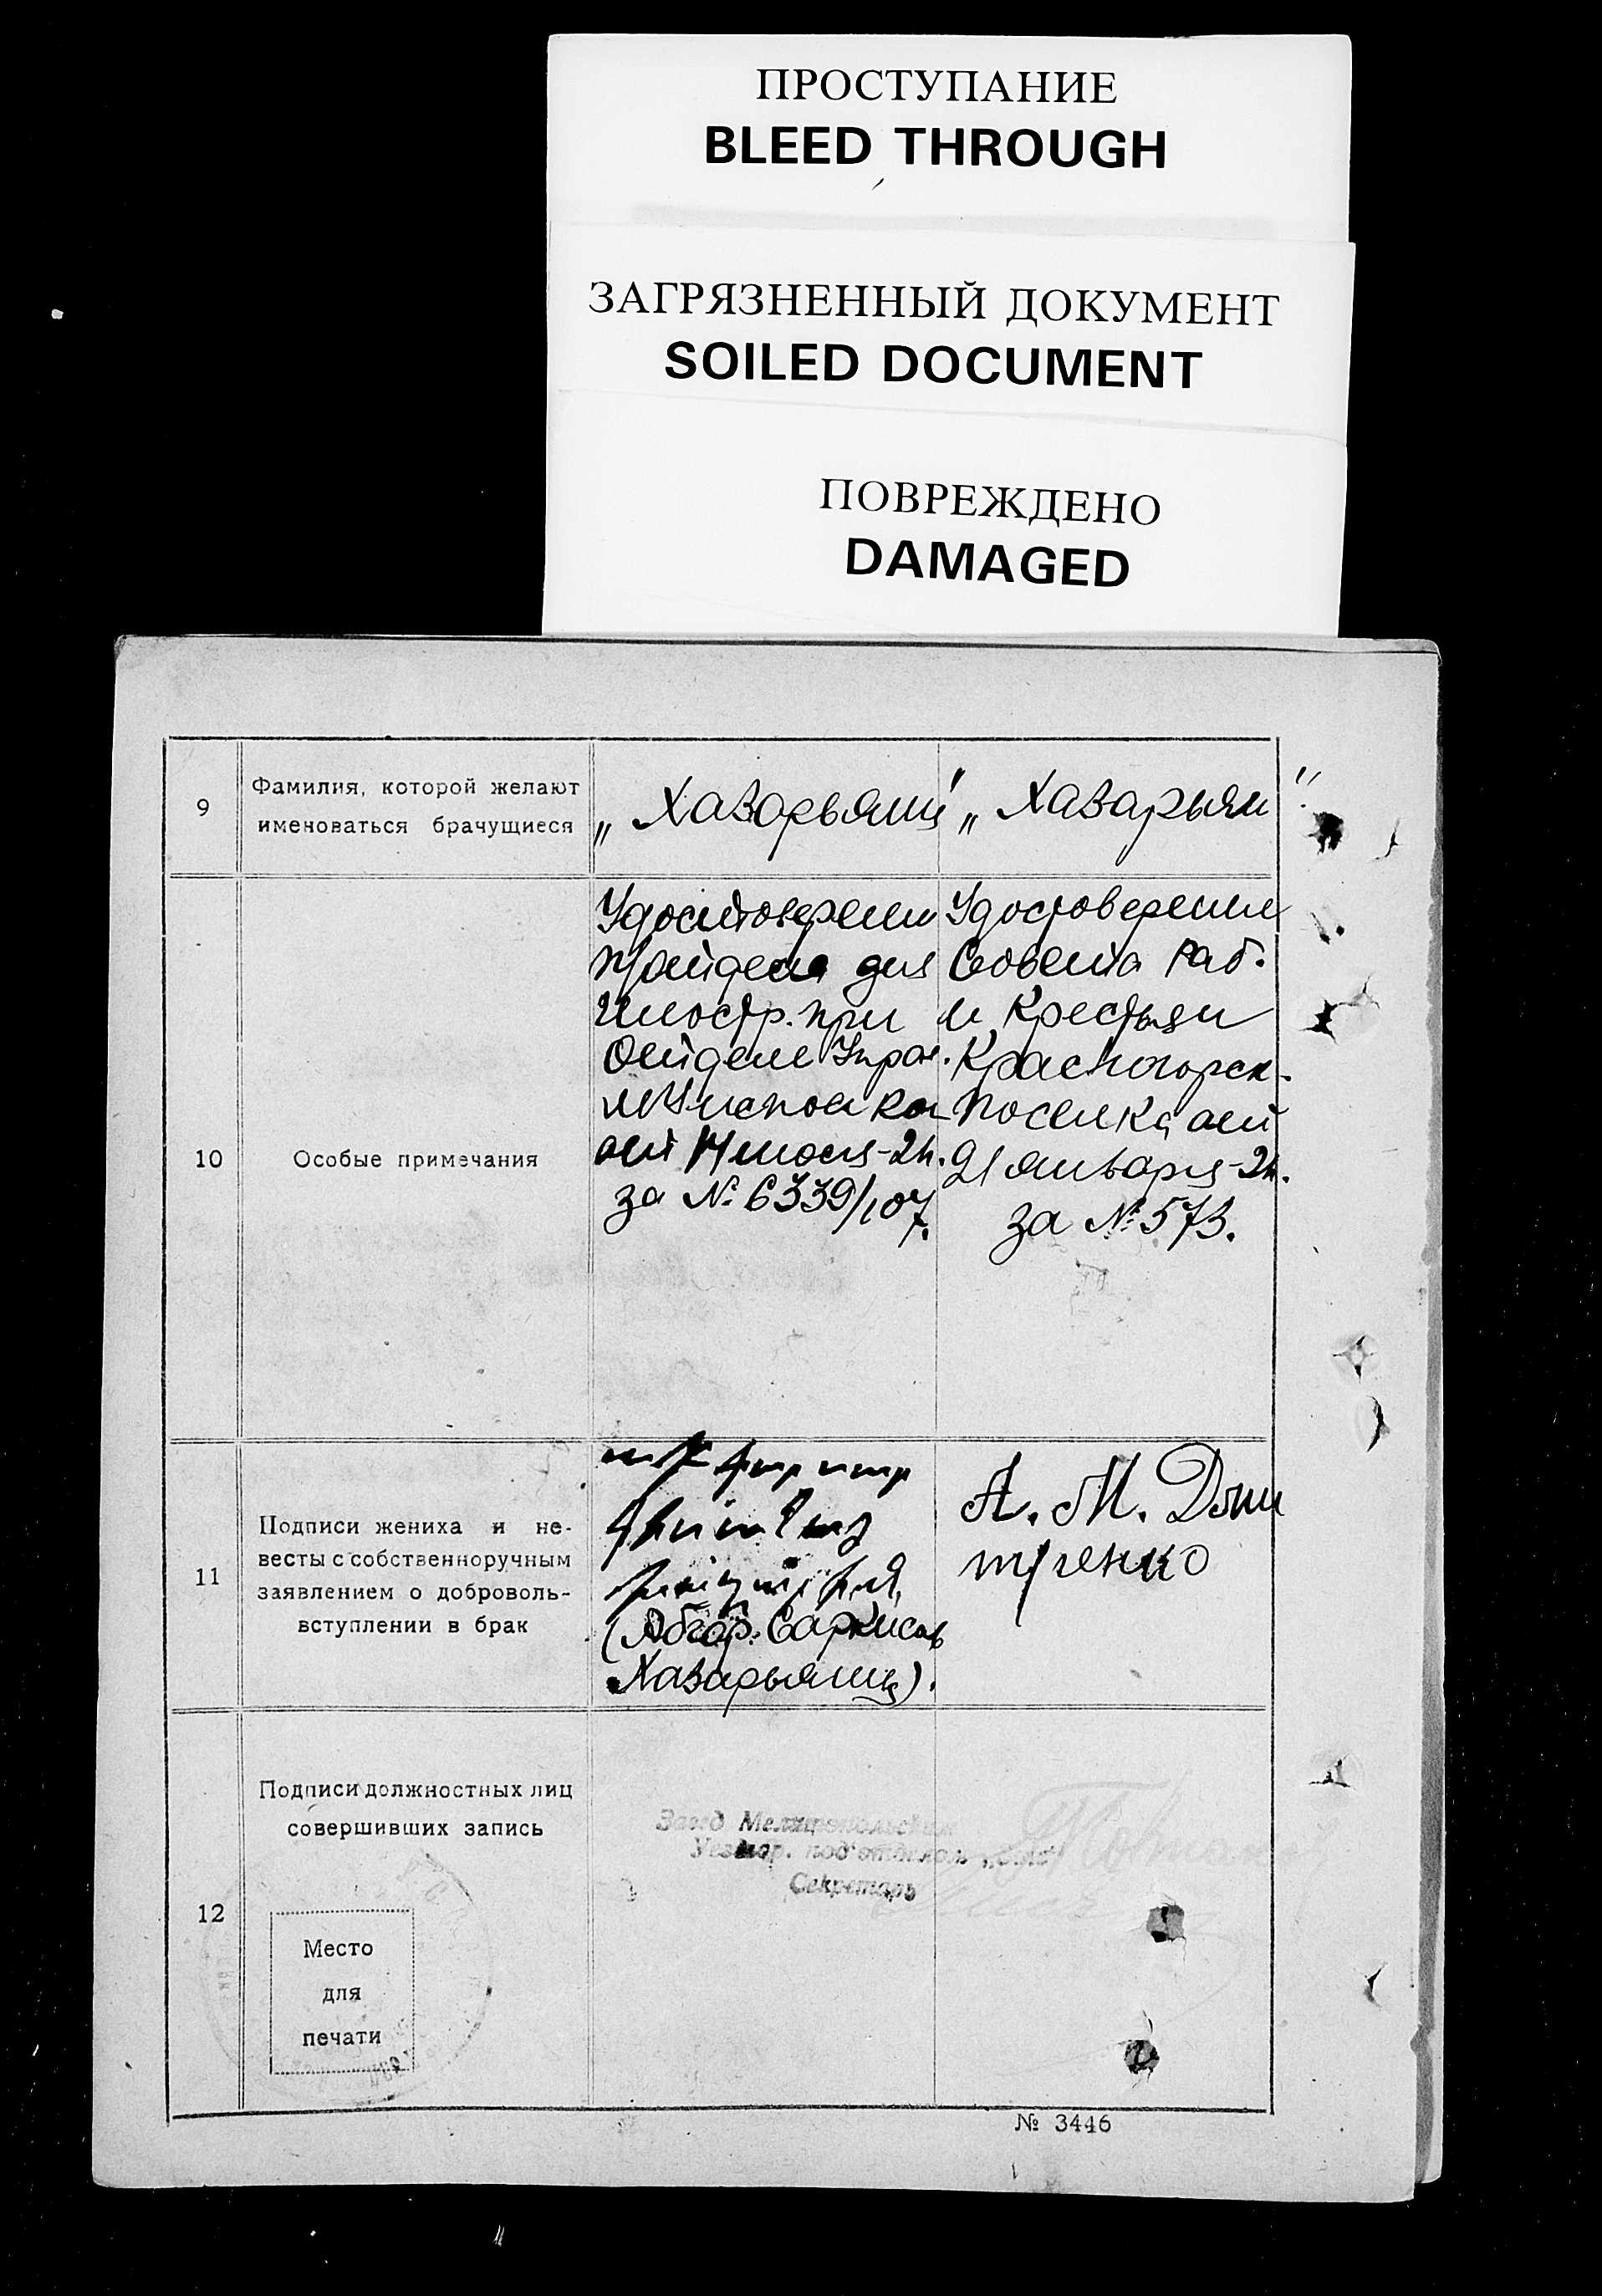 ПРОСТУПАНИЕ
BLEED THROUGH
ЗАГРЯЗНЕННЫЙ ДОКУМЕНТ
SOILED DOCUMENT
ПОВРЕЖДЕНО
DAMAGED
9
Фамилия, которой желают
именоваться брачущиеся
„Хазарьянц"
„Хазарьян"
10
Особые примечания
Удостоверени
для
Иностр. при
Отделе Управ.
от 14 июня-24.
за № 6339/107.
Удостоверение
Совета Раб.
и Крестьян
Красногорск.
поселка от
21 января-24.
за № 573.
11
Подписи жениха и не-
весты с собственноручным
заявлением о доброволь-
вступлении в брак
(Абгар. Саркисов
Хазарьянц).
А. М. Дми
тренко
12
Подписи должностных лиц
совершивших запись
Место
для
печати
Завед Мелитопольским
под'отделом
Секретарь
№ 3446